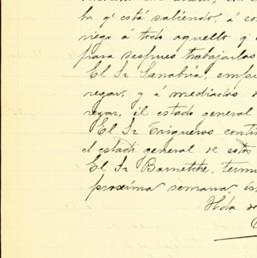 ba y está saliendo, á co
riego á todo aquello y
para despues trabajarlos
El Sr Sanabria, emp
regar, y á mediados d
regar, el estado general
El Sr Trigueros conti
el estado general de esto
El Sr Barnetche, term
proxima semana, és
Hda de